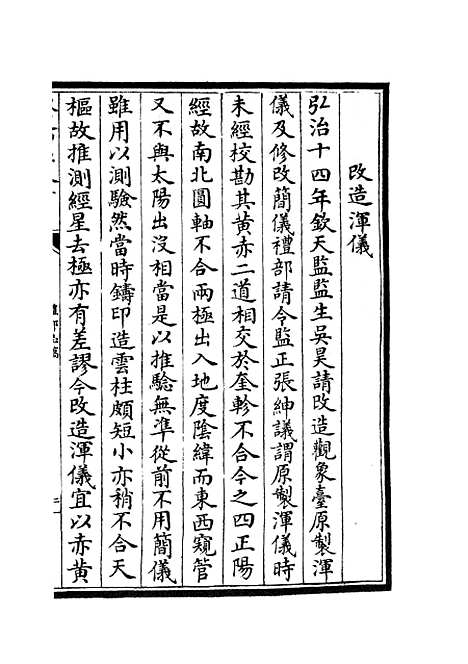 改造渾儀
弘治十四年欽天監監生吳昊請改造觀象臺原製渾
儀及修改簡儀禮部請令監正張紳議謂原製渾儀時
未經校勘其黃赤二道相交於奎軫不合今之四正陽
經故南北圓軸不合兩極出入地度陰緯而東西窺管
又不與太陽出没相當是以推驗無準從前不用簡儀
雖用以測驗然當時鑄印造雲柱頗短小亦稍不合天
樞故推測經星去極亦有差謬今改造渾儀宜以赤黃